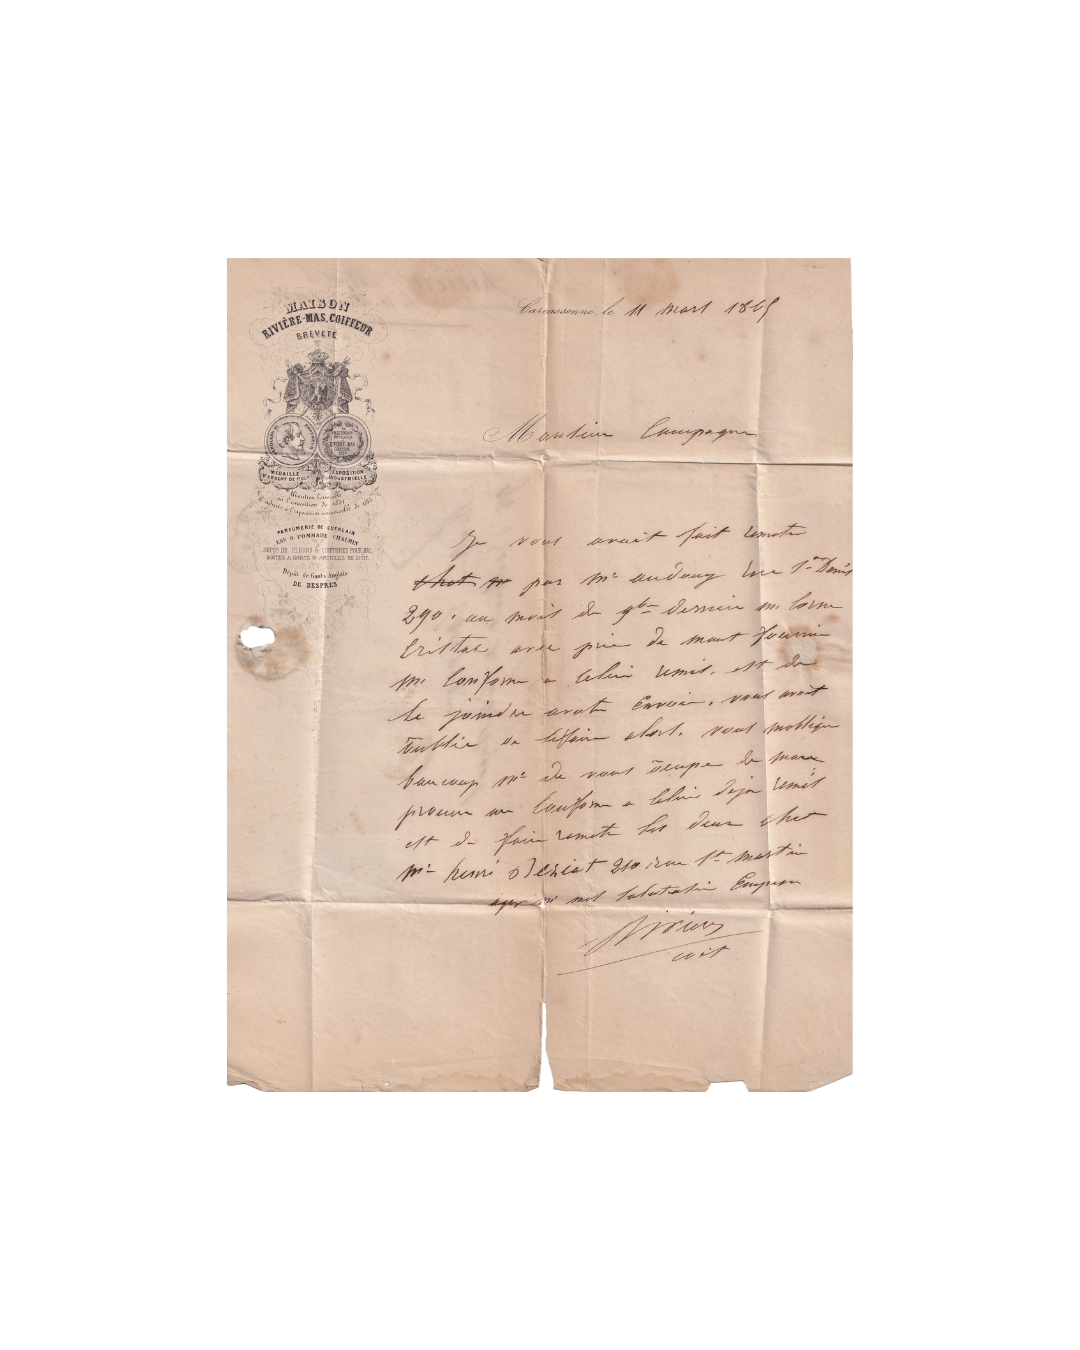 MAISON
RIVIÈRE-MAS, COIFFEUR
BREVETÉ
MÉDAILLE
D'ARGENT DE 1re CL.
EXPOSITION
INDUSTRIELLE
Mention honorable
à l'exposition de
PARFUMERIE DE GUERLAIN
EAU & POMMADE CHALMIN
DÉPÔT DE FLEURS & COIFFURES POUR BAL
BOÎTES A GANTS & ARTICLES DE GOÛT.
Dépôt de Gants Anglais
DE DESPRÈS
Carcassonne, le 11 mars 1865
Monsieur Campagne
Je vous avait fait remete
par Mr audouy rue St Denis
290. au mois de 9bre dernier un
avec de maut
un conforme a celui remis. est de
le joindre avote Envoie. vous avait
oublié de alors. vous mobligere
baucoup Mr de vous ocupe de
procure un conforme a celui deja remis
est de faire remete les deux chez
Mr henri 210 rue St Martin
mes salutation Empress
Rivière
coif